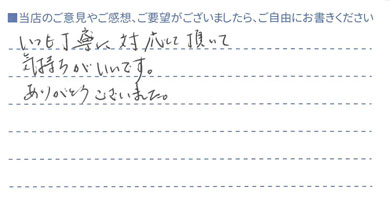 ■当店のご意見やご感想、ご要望がございましたら、ご自由にお書きください
いつも丁寧に対応して頂いて
気持ちがいいです。
ありがとうございました。